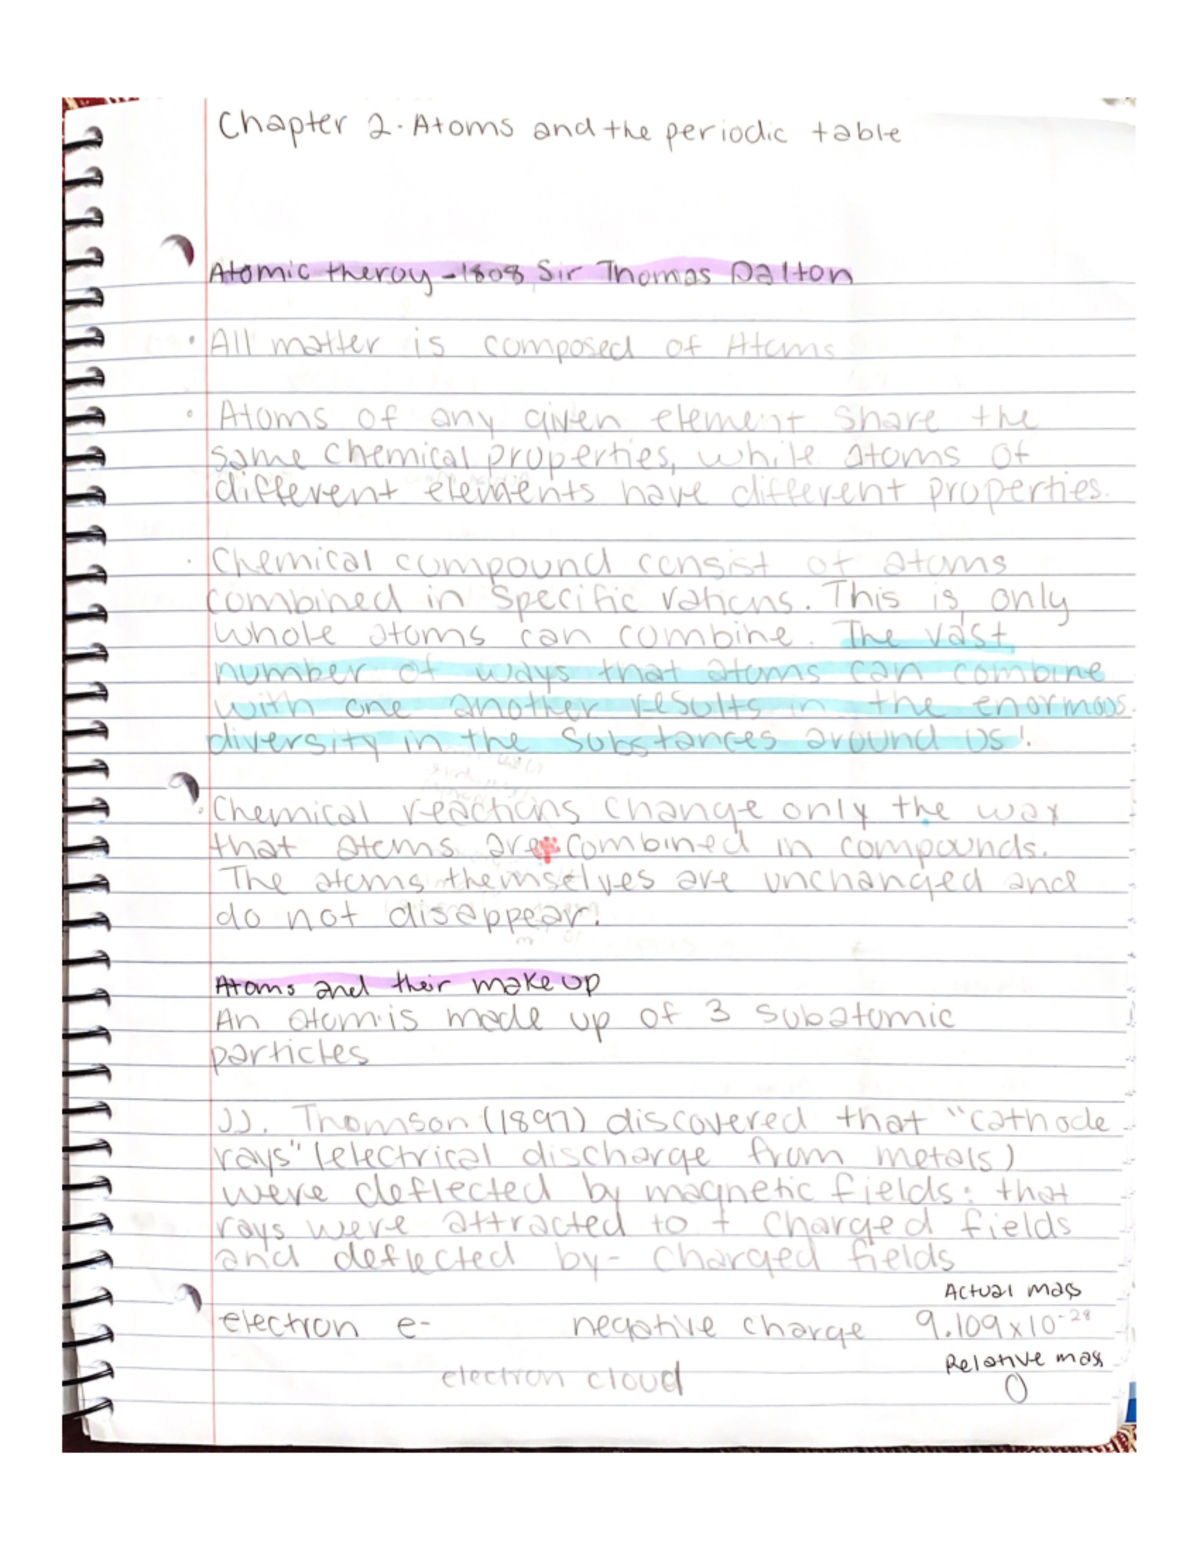 Chapter 2. Atoms and the periodic table
Atomic theroy - 1808 Sir Thomas Dalton
• All matter is composed of Atoms
• Atoms of any given element share the
same chemical properties, while atoms of
different elements have different properties.
• Chemical compound consist of atoms
combined in specific rations. This is only
whole atoms can combine. The vast
number of ways that atoms can combine
with one another results in the enormous
diversity in the substances around us!
• Chemical reactions change only the way
that atoms are combined in compounds.
The atoms themselves are unchanged and
do not disappear.
Atoms and their make up
An atom is made up of 3 subatomic
particles
JJ. Thomson (1897) discovered that "cathode
rays" (electrical discharge from metals)
were deflected by magnetic fields: that
rays were attracted to + charged fields
and deflected by - charged fields
Actual mass
electron e- negative charge 9.109x10⁻²⁸
Relative mass
electron cloud 0